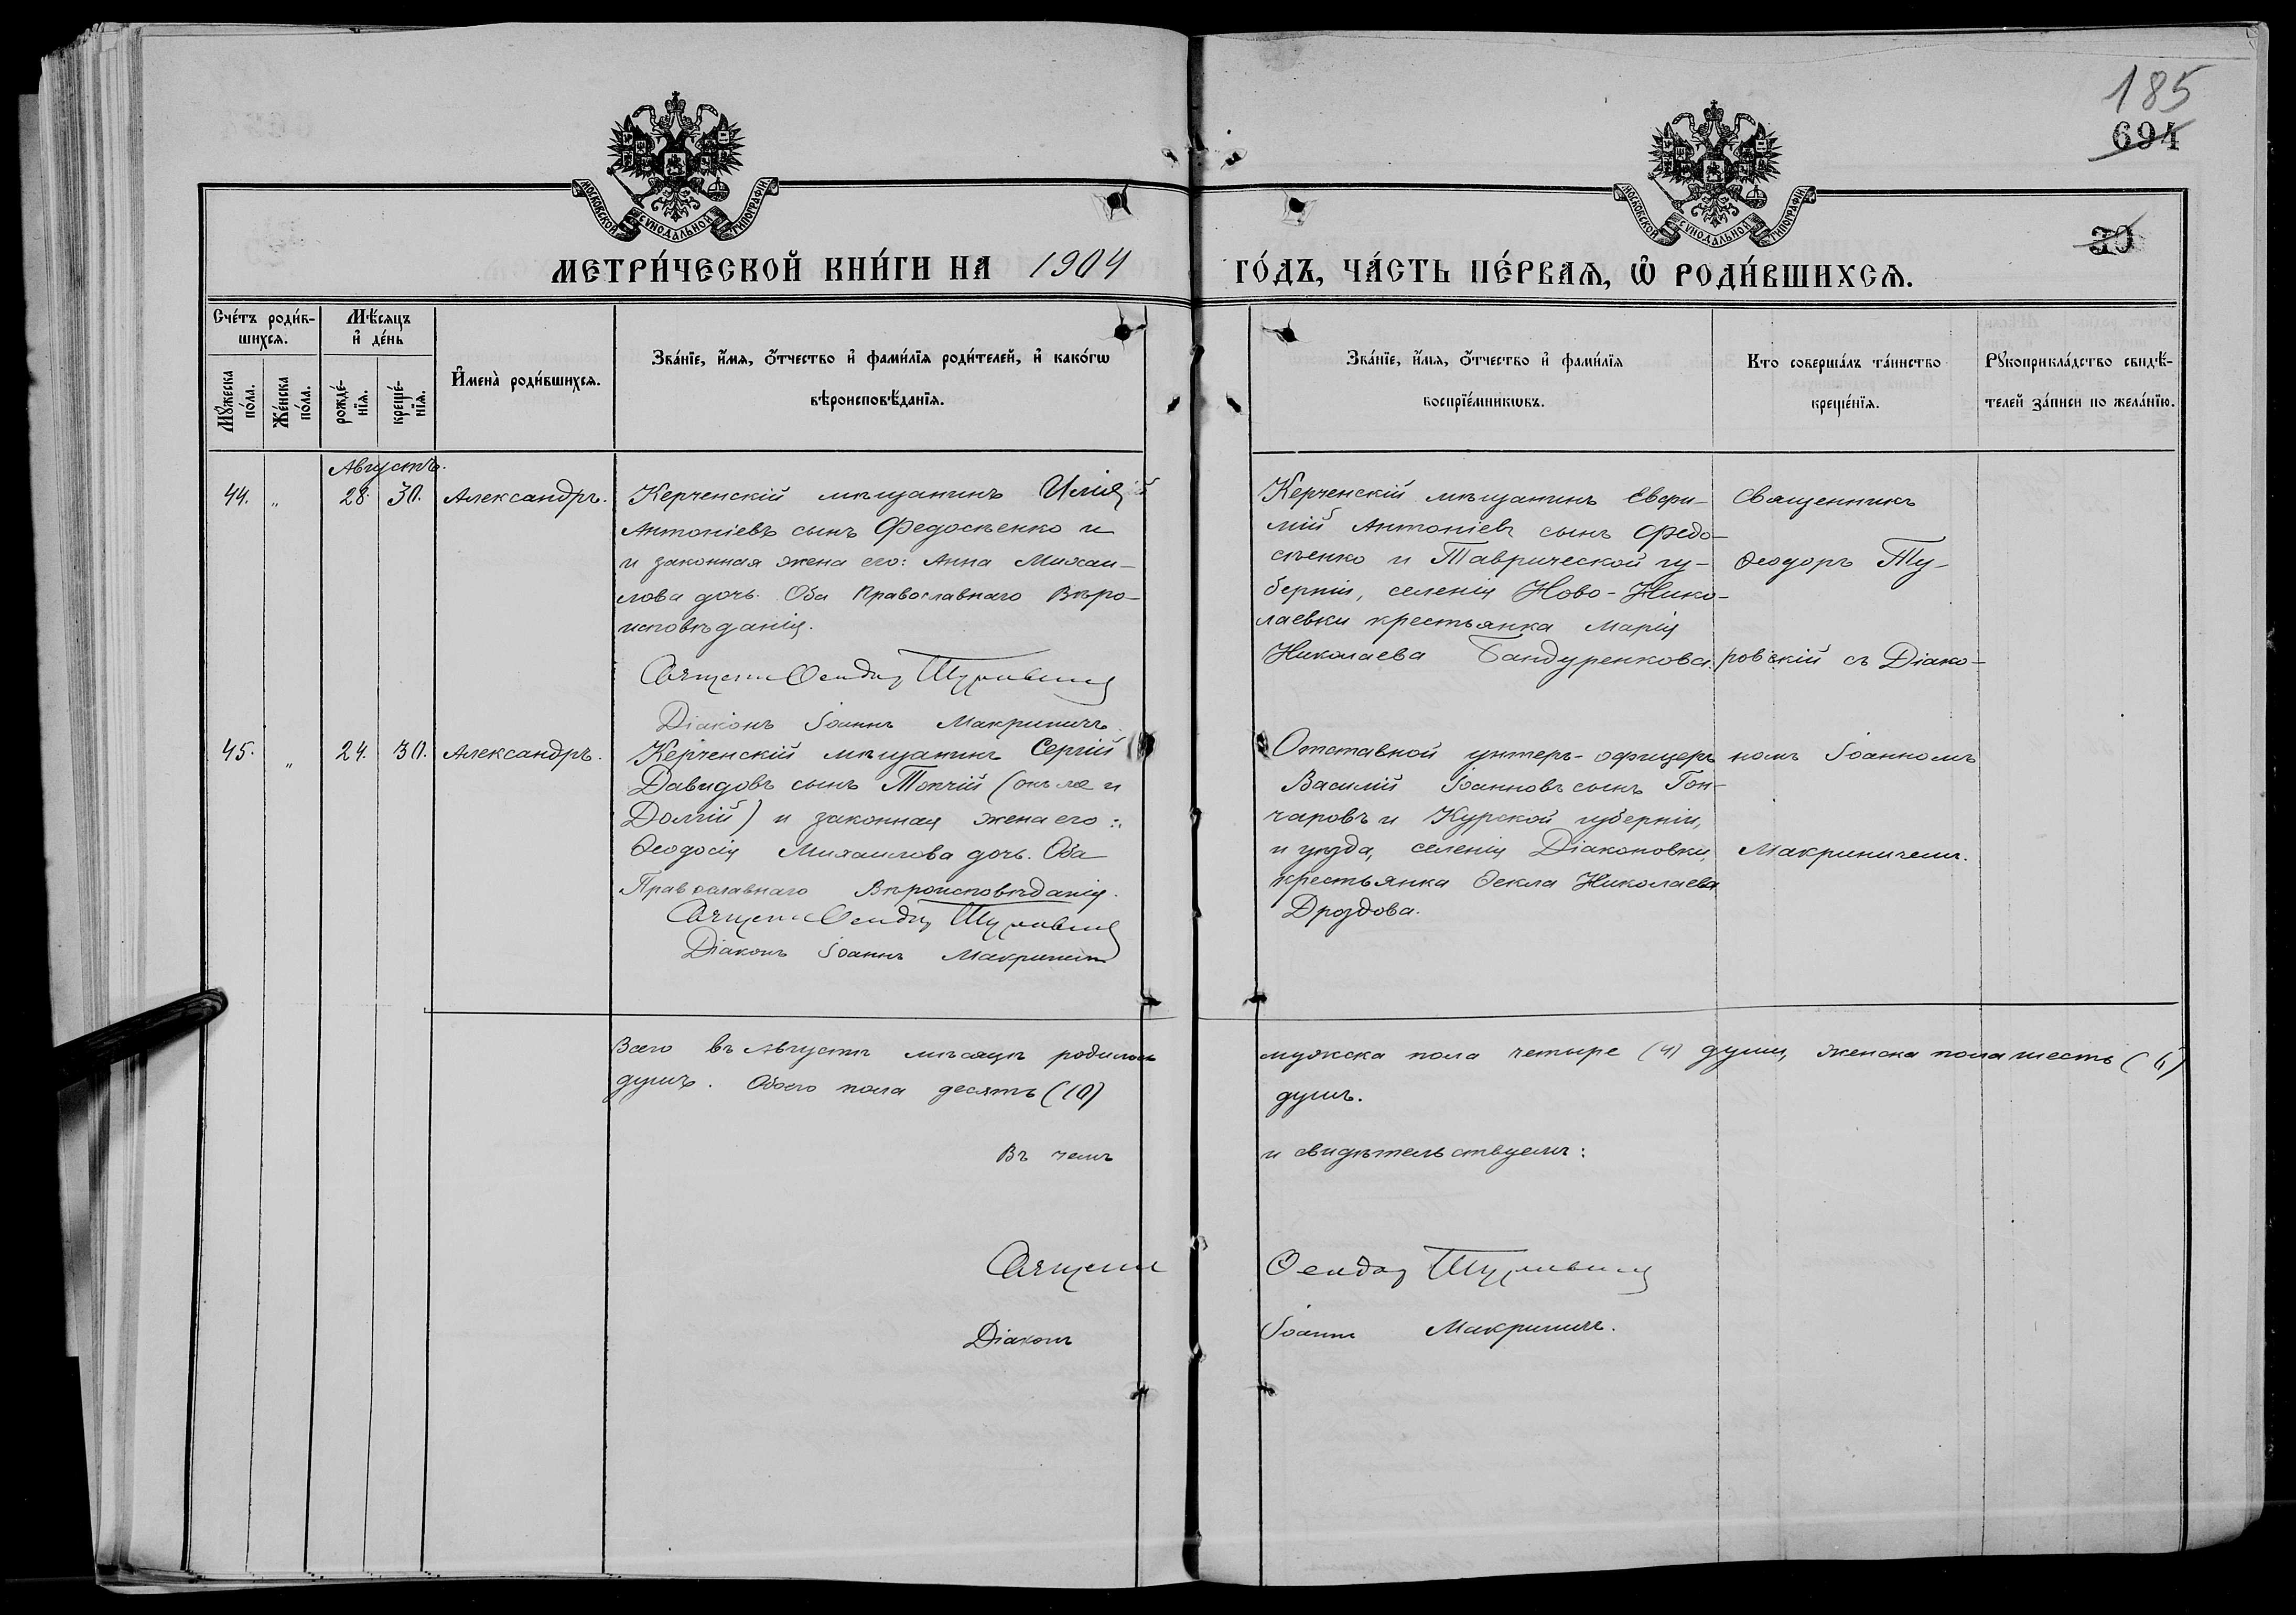 185
694
30
МОСКОВСКОЙ СѴНОДАЛЬНОЙ ТИПОГРАФІИ
МОСКОВСКОЙ СѴНОДАЛЬНОЙ ТИПОГРАФІИ
МЕТРИ́ЧЕСКОЙ КНИ́ГИ НА 1904
ГО́ДЪ, ЧА́СТЬ ПЕ́РВАѦ, Ѿ РОДИ́ВШИХСѦ.
Сче́тъ роди́в-
шихсѧ.
Мꙋ́жеска
по́ла.
Же́нска
по́ла.
Мѣ́сѧцъ
и҆ де́нь
рожде́-
нїѧ.
креще́-
нїѧ.
И҆мена̀ роди́вшихсѧ.
Зва́нїе, и҆́мѧ, ѻ҆́тчество и҆ фами́лїѧ роди́телей, и҆ како́гѡ
вѣроисповѣ́данїѧ.
Зва́нїе, и҆́мѧ, ѻ҆́тчество и҆ фами́лїѧ
воспрїе́мникѡвъ.
Кто соверша́лъ та́инство
креще́нїѧ.
Рꙋкоприкла́дство свидѣ́-
телей за́писи по жела́нїю.
Августъ.
44. „ 28. 30. Александръ.
Керченскій мѣщанинъ Илія
Антоніевъ сынъ Федосѣенко и
и законная жена его: Анна Михаи-
лова дочь. Оба Православнаго Вѣро-
исповѣданія.
Діаконъ Іоаннъ Макриничъ
Керченскій мѣщанинъ Евфи-
мій Антоніевъ сынъ Федо-
сѣенко и Таврической гу-
берніи, селенія Ново-Нико-
лаевки крестьянка Марія
Николаева Бандуренкова.
Священникъ
Ѳеодоръ Ту-
ровскій съ Діако-
номъ Іоанномъ
Макриничемъ.
45. „ 24. 30. Александръ.
Керченскій мѣщанинъ Сергій
Давидовъ сынъ Топчій (онъ же и
Долгій) и законная жена его:
Ѳеодосія Михаилова дочь. Оба
Православнаго Вѣроисповѣданія.
Діаконъ Іоаннъ Макриничъ
Отставной унтеръ-офицеръ
Василій Іоанновъ сынъ Гон-
чаровъ и Курской губерніи,
и уѣзда, селенія Діаконовки,
крестьянка Ѳекла Николаева
Дроздова.
Всего въ Августѣ мѣсяцѣ родилось мужска пола четыре (4) души, женска пола шесть (6)
душъ. Обоего пола десять (10) душъ.
Въ чемъ и свидѣтельствуемъ:
Діаконъ Іоаннъ Макриничъ.